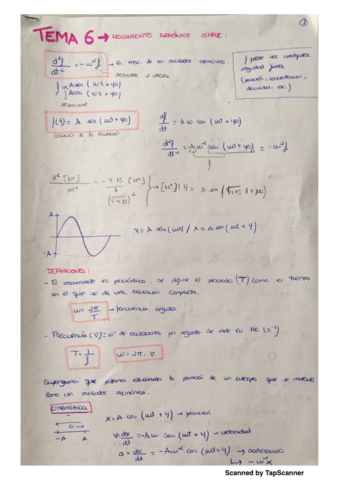 ①
TEMA 6 → MOVIMIENTO ARMÓNICO SIMPLE:
d²f/dt² = -ω²f → a mov. de un oscilador armónico
f puede ser cualquier magnitud física (posición, concentración, densidad, etc.)
derivada 2 veces
f = A sen (ωt + φ0)
A cos (ωt + φ0)
f(t) = A sen (ωt + φ0)
solución de la función
df/dt = A ω cos (ωt + φ0)
d²f/dt² = -A ω² sen (ωt + φ0) = -ω²f
f
A
-A
y = A sen (ωt) / A = A cos (ωt + φ)
DEFINICIONES:
- El movimiento es periódico, se define el periodo (T) como el tiempo
en el que se da una oscilación completa.
ω = 2π/T → frecuencia angular
- Frecuencia (ν): nº de oscilaciones por segundo. Se mide en Hz (s⁻¹)
T = 1/f
ω = 2π · ν
Supongamos que estamos estudiando la posición de un cuerpo que se mueve
como un oscilador armónico.
Cinemática
x = A · cos (ωt + φ) → posición
-A 0 A
v = dx/dt = -Aω sen (ωt + φ) → velocidad
a = dv/dt = -Aω² cos (ωt + φ) → aceleración
↳ -ω²x
Scanned by TapScanner